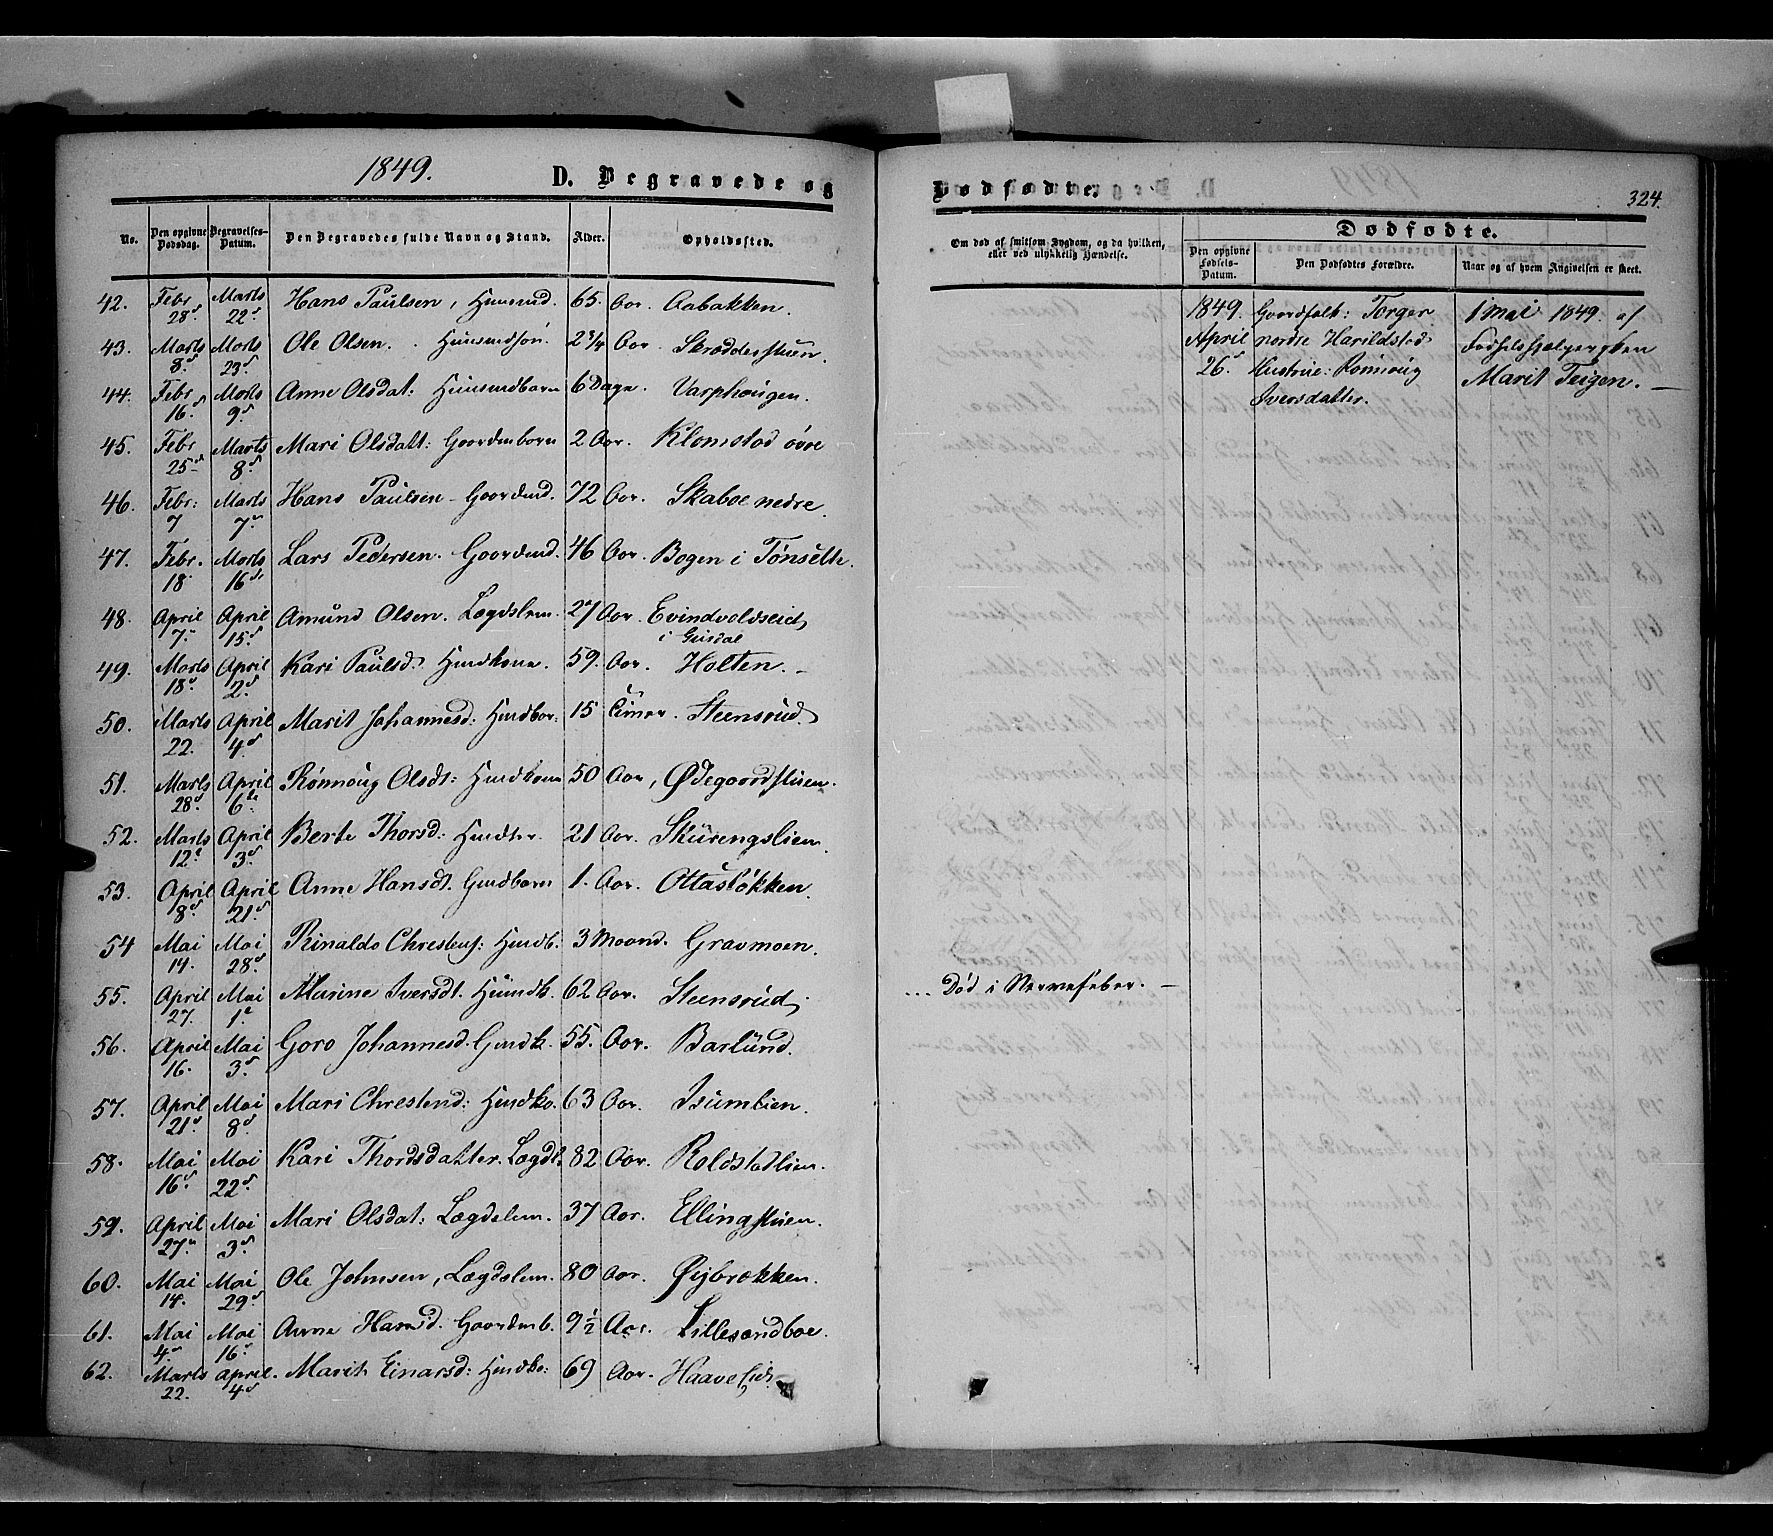 1849. D. Begravede og
No. Den opgivne Dødsdag. Begravelses-Datum. Den Begravedes fulde Navn og Stand. Alder. Opholdssted.
42. Febr 28d Marts 22d Hans Paulsen, Huusmd. 65. Aar. Aabakken.
43. Marts 8d Marts 23d Ole Olsen. Huusmdsøn. 2 3/4 Aar. Skrædderstuen.
44. Febr 16d Marts 9d Anne Olsdat: Huusmdbarn 6 Dage. Varphougen.
45. Febr 25d Marts 8d Mari Olsdatt: Gaardmbarn 2 Aar. Klomstad øvre
46. Febr: 7 Marts 7de Hans Paulsen - Gaardmd. 72 Aar. Skaboe nedre.
47. Febr. 18 Marts 16de Lars Pedersen. Gaardmd. 46 Aar. Bogen i Tønsette.
48. April 7de April 15d Amund Olsen. Lægdslem. 27 Aar. Evindvoldseid
i Gusdal
49. Marts 18d April 2d Kari Paulsd: Husdkone. 59. Aar. Holten. -
50. Marts 22. April 4d Marit Johannesd: Husdbar: 15 Timer. Steensrud.
51. Marts 28d April 6te Rønnoug Olsdt: Husdkone 50 Aar, Ødegaardstuen.
52. Marts 12te April 3d Berte Thorsd: Husdter. 21 Aar. Skurengslien.
53. April 8d April 21d Anne Hansdt. Gmdbarn 1. Aar. Ottasløkken.
54 Mai 14. Mai 28d Rinaldo Chrestens: Husdb. 3 Maand. Gravmoen.
55. April 27. Mai 1te Marine Iversdt. Huusdk. 62 Aar. Steensrud. ... Død i Nervefeber. -
56. April 16. Mai 3d Goro Johannesd. Gmdk. 55. Aar. Barlund.
57. April 21d Mai 8d Mari Chrestend: Husdko. 63 Aar. Isumlien.
58. Mai 16d Mai 22d Kari Thordsdatter. Lægdl. 82 Aar. Roldstadlien.
59. April 27de Mai 3d Mari Olsdat: Lægdslem. 37 Aar. Ellingstuen.
60. Mai 14. Mai 29d Ole Johnsen, Lægdslem. 80 Aar. Øybrækken.
61. Mai 4de Mai 16de Anne Hansd. Gaardmb. 9 1/2 Aar. Lillesandboe.
62. Marts 22. April. 4d Marit Einarsd: Husdko: 69 Aar. Haavesid.
Dødfødte.
324.
Om død af smitsom Sygdom, og da hvilken, eller ved ulykkelig Hændelse.
Dødfødte.
Den opgivne Fødsels-Datum. Den Dødfødtes Forældre. Naar og af hvem Angivelsen er skeet.
1849. Gaardfolk: Torger 1 Mai 1849. af
April nordre Harildstad Fødselshjelpersken
26d Hustrue: Rønnoug Marit Teigen. -
Iversdatter.